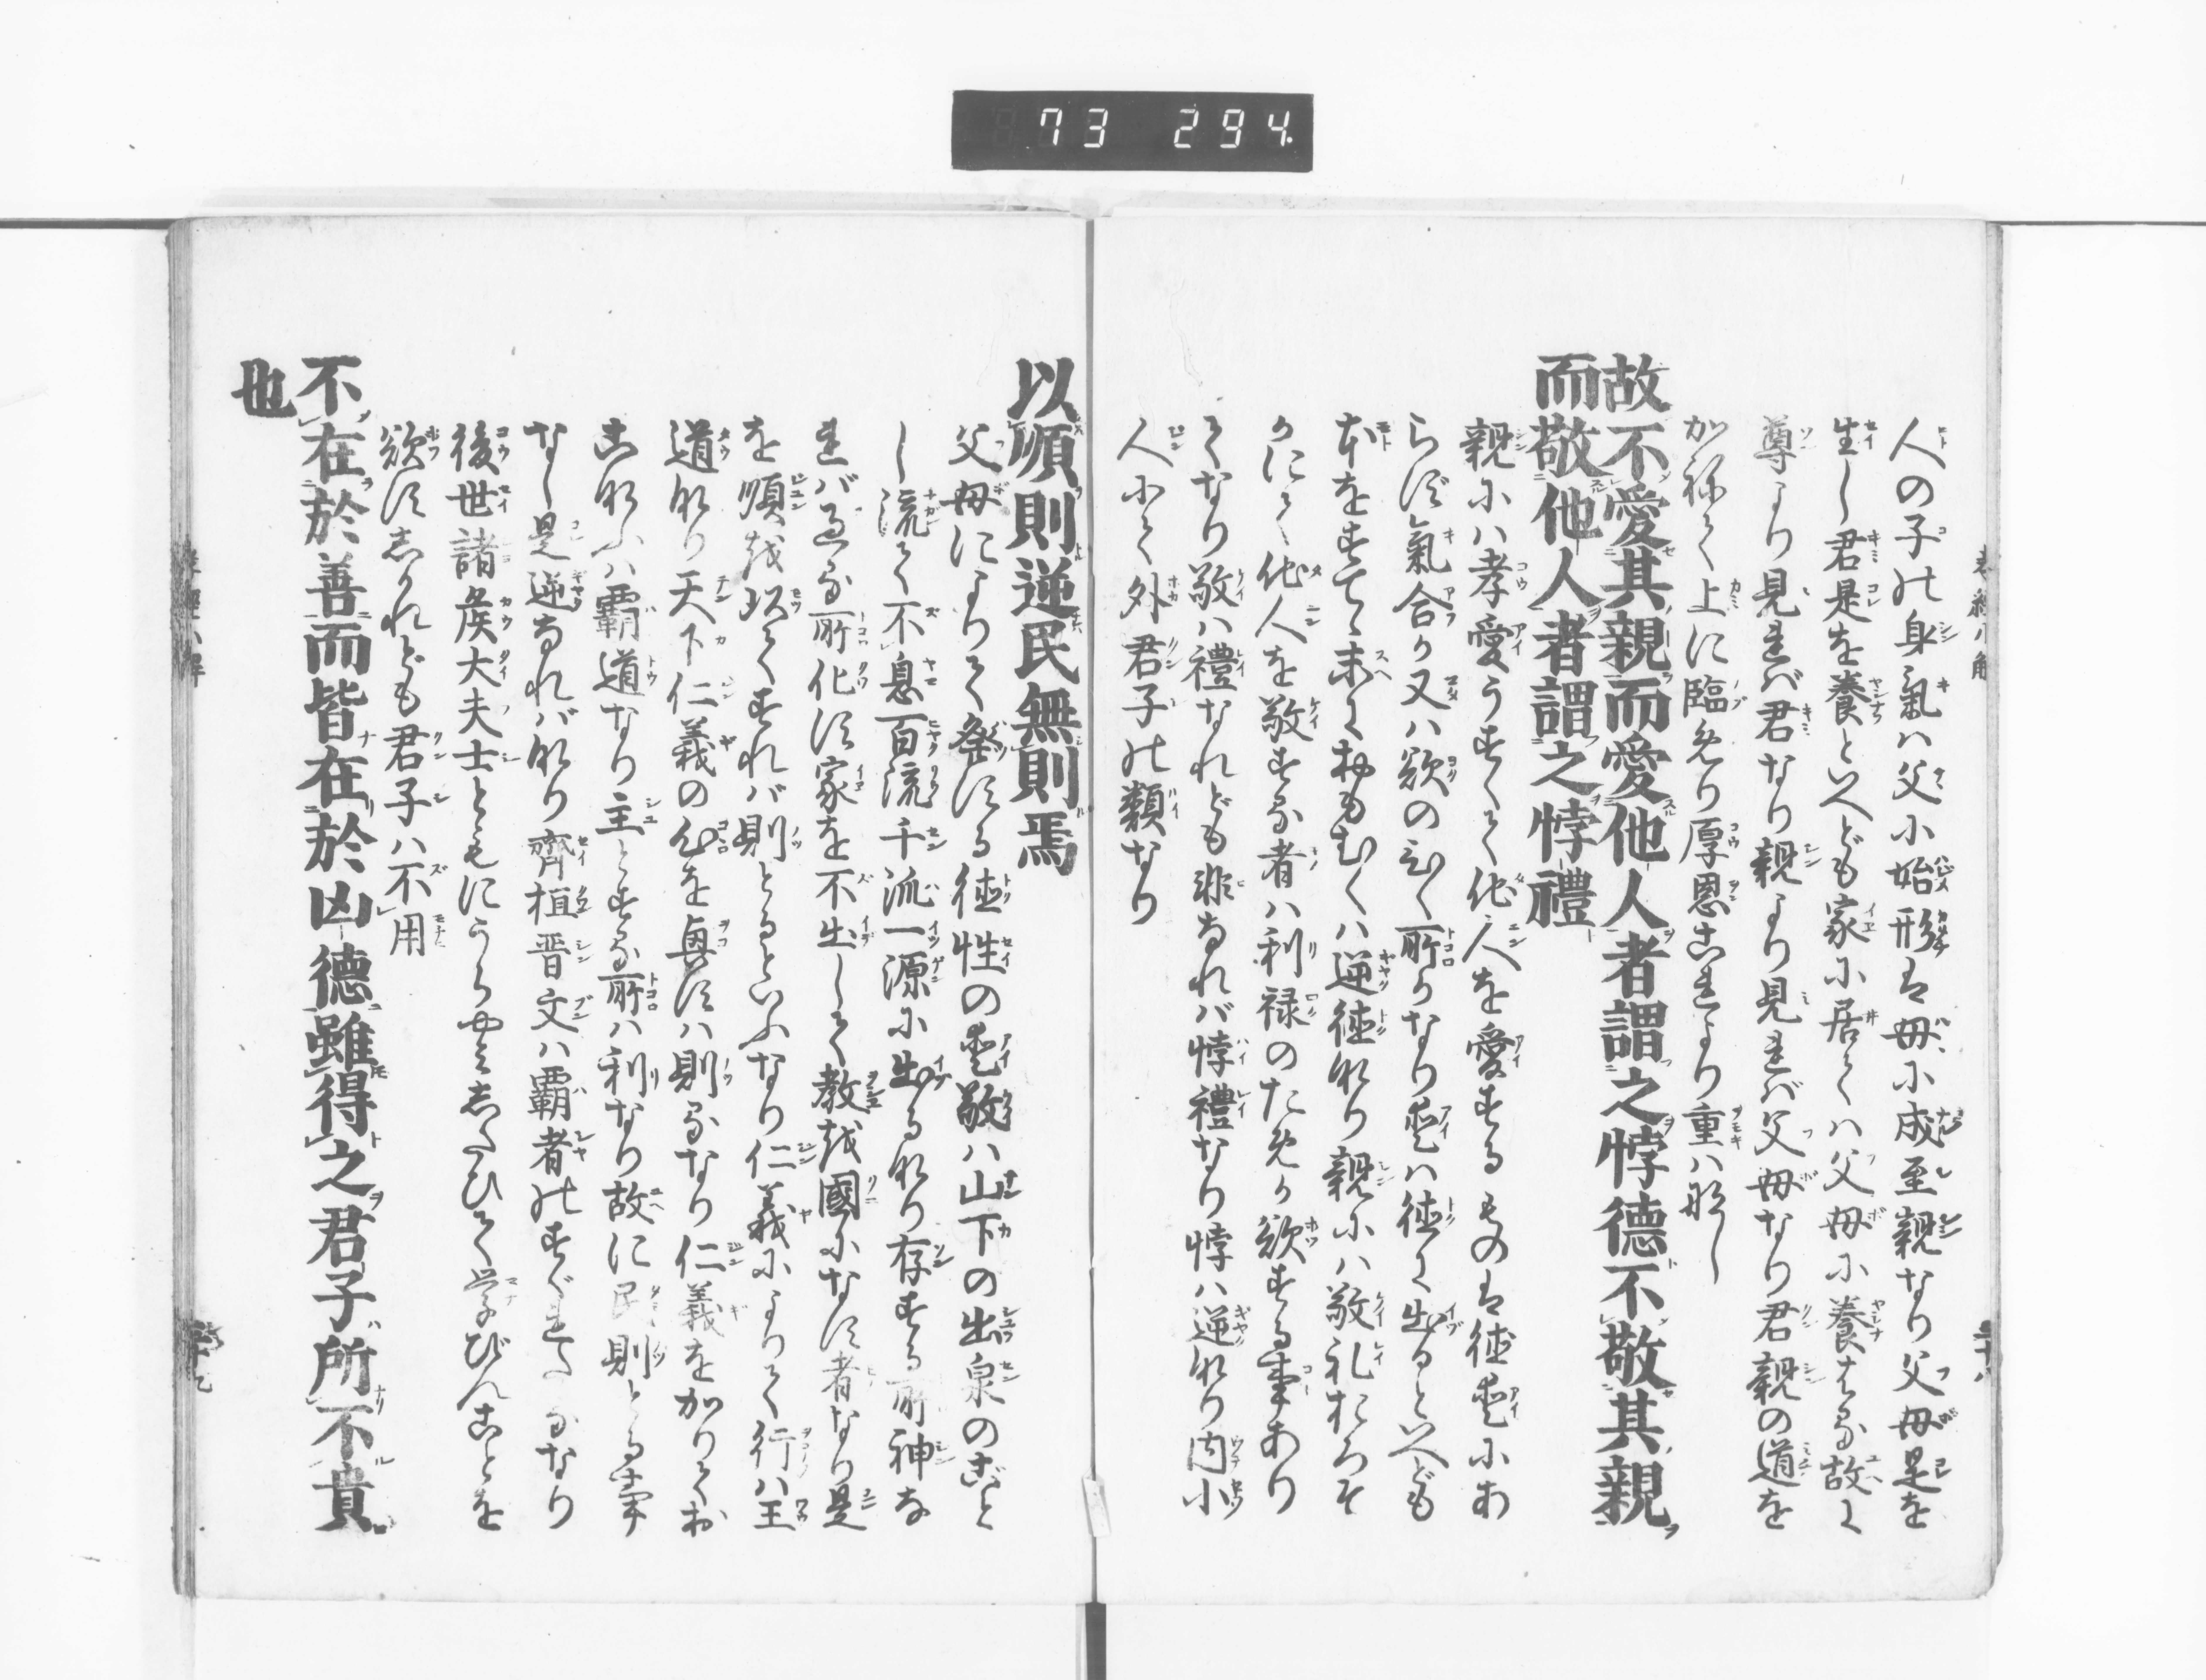 73 294.
人の子の身氣ハ父に始形は母に成至親なり父母是を
生し君是を養といへども家に居てハ父母に養はる故に
尊より見れバ君なり親より見れバ父母なり君親の道を
かねて上に臨めり厚恩これより重ハなし
故不愛其親而愛他人者謂之悖德不敬其親
而敬他人者謂之悖禮
親にハ孝愛うすくて他人を愛するものは徳愛にあ
らず氣合か又ハ欲のひく所かなり愛ハ徳に出るといへども
本をすてゝ末におもむくハ逆徳なり親にハ敬礼おろそ
かにて他人を敬する者ハ利禄のためか欲する事あり
てなり敬ハ禮なれども非なれバ悖禮なり悖ハ逆なり内小
人にて外君子の類なり
以順則逆民無則焉
父母によりて發する徳性の愛敬ハ山下の出泉のごと
し流て不息百流千派一源に出るなり存する所神な
れバ過る所化す家を不出して教を國になす者なり是
を順を以てすれバ則とるといふなり仁義によりて行ハ王
道なり天下仁義の心を興すハ則るなり仁義をかりてお
こなふハ覇道なり主とする所ハ利なり故に民則とる事
なし是逆なれバなり齊桓晋文ハ覇者のすぐれたるなり
後世諸侯大夫士ともにうらやみしたひて学びんことを
欲すしかれども君子ハ不用
不在於善而皆在於凶德雖得之君子所不貴
也